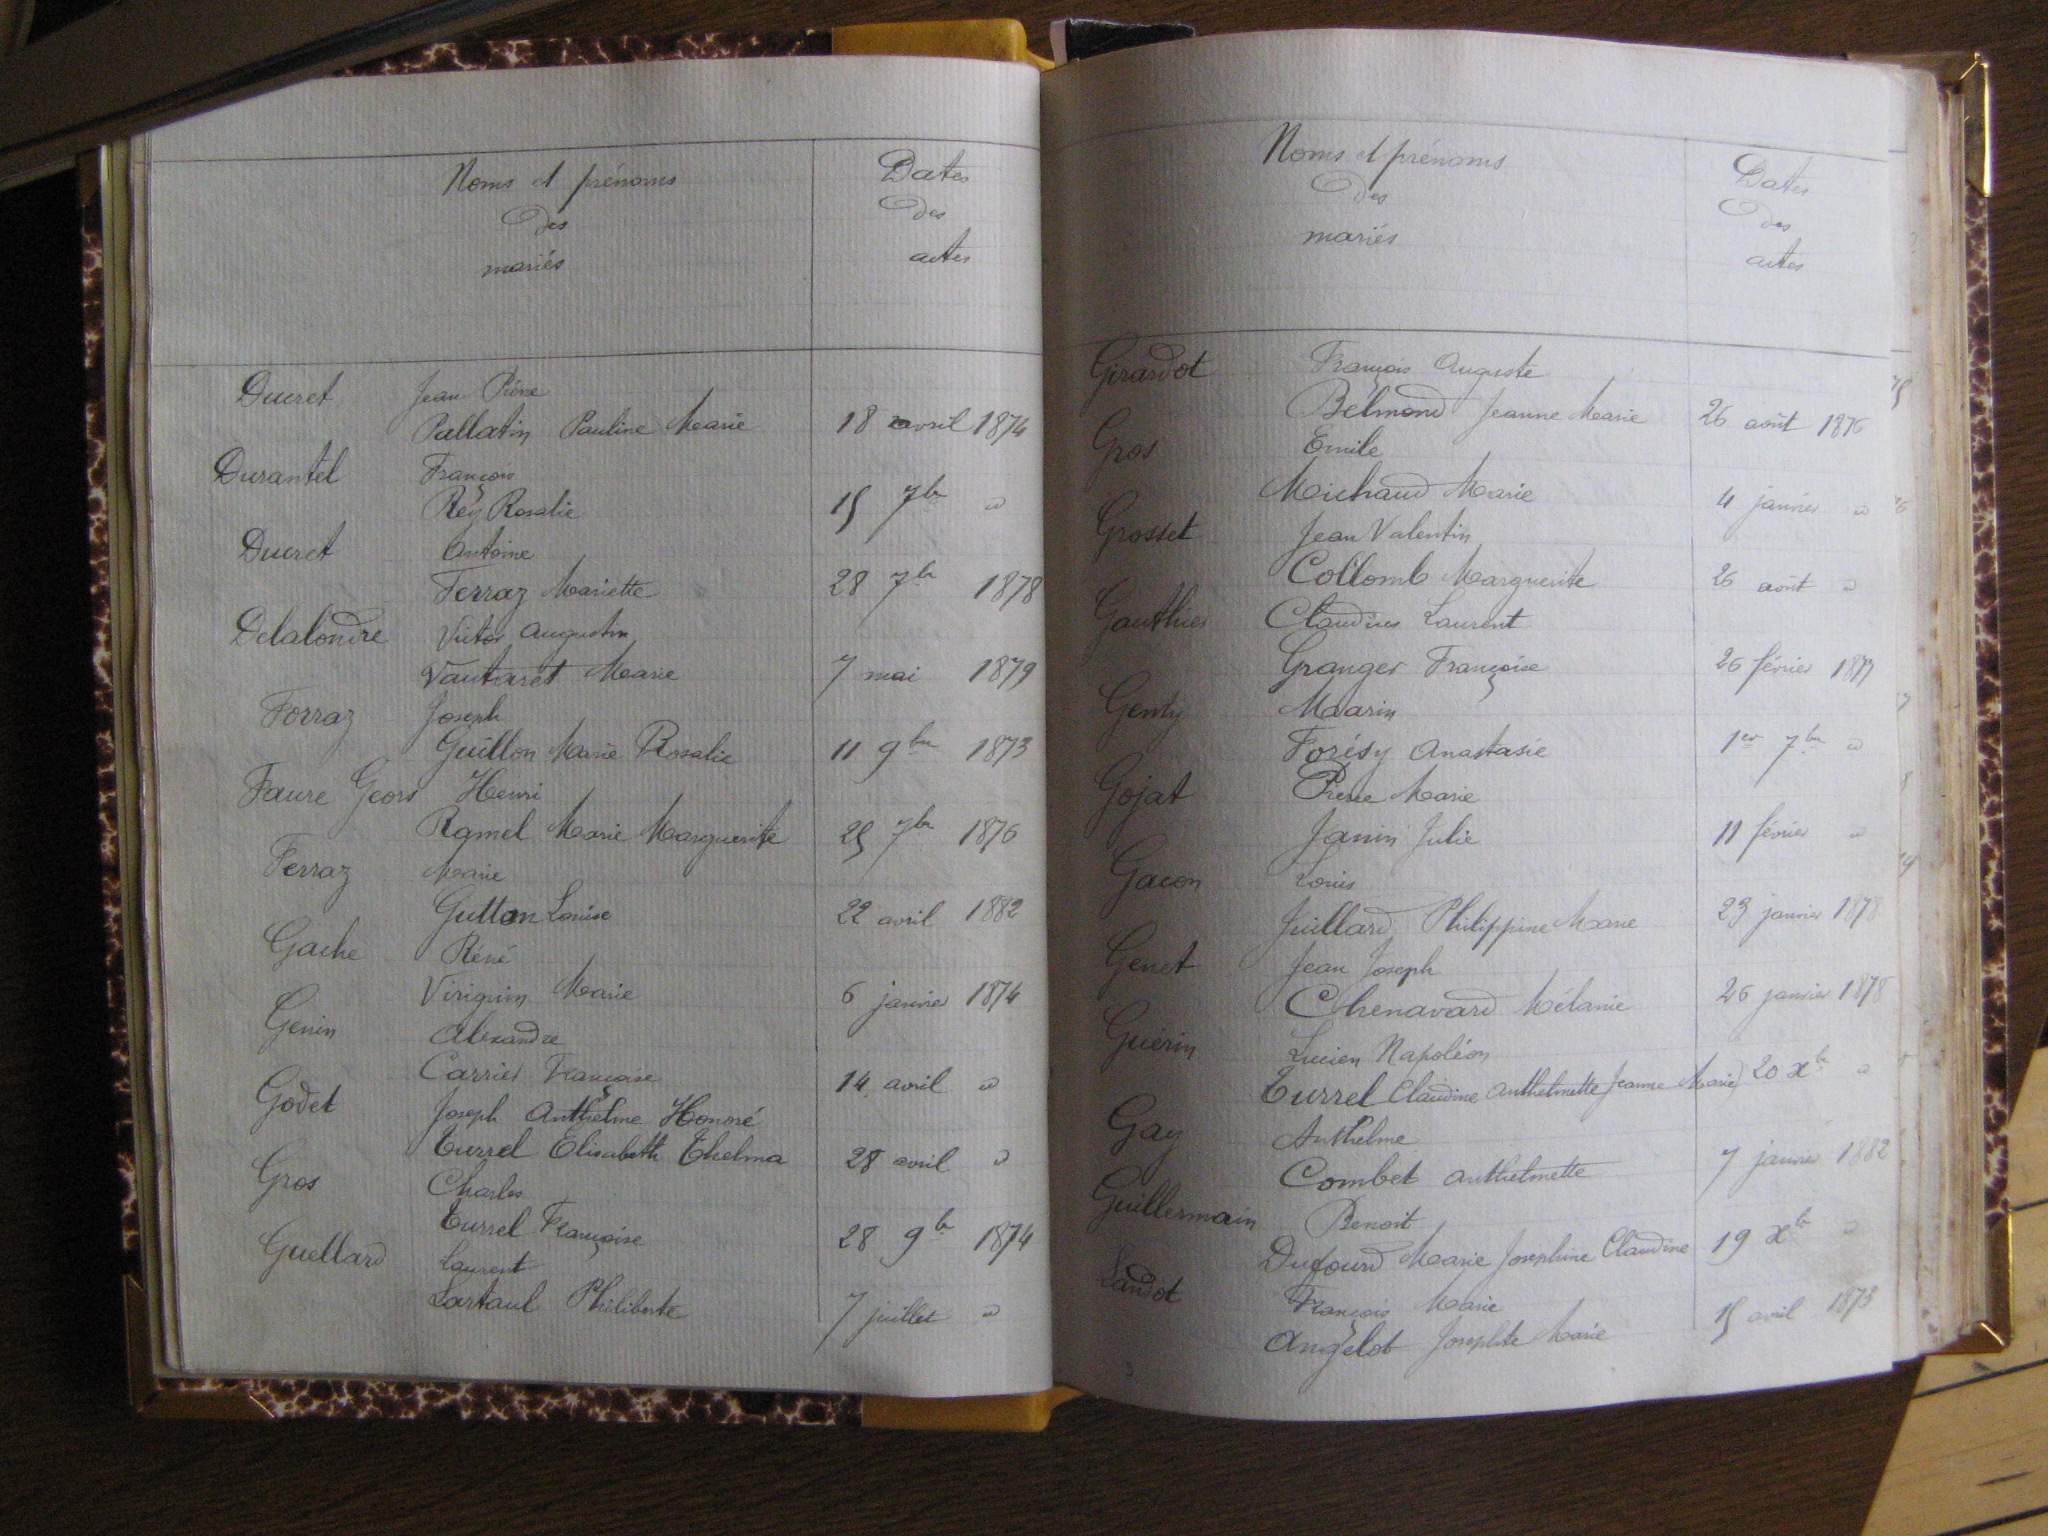 Noms et prénoms
des
mariés
Dates
des
actes
Ducret Jean Pierre
Pallatin Pauline Marie 18 avril 1874
Durantel François
Rey Rosalie 15 7bre "
Ducret Antoine
Ferraz Mariette 28 7bre 1878
Delalondre Victor Augustin
Vautaret Marie 7 mai 1879
Forraz Joseph
Guillon Marie Rosalie 11 9bre 1873
Faure Geors Henri
Ramel Marie Marguerite 25 7bre 1876
Ferraz Marie
Gutton Louise 22 avril 1882
Gache Réné
Virignin Marie 6 janvier 1874
Genin Alexandre
Carrier Françoise 14 avril "
Godet Joseph Anthelme Honoré
Turrel Elisabeth Thelma 28 avril "
Gros Charles
Turrel Françoise 28 9bre 1874
Guellard Laurent
Lartaul Philiberte 7 juillet "
Noms et prénoms
des
mariés
Dates
des
actes
Girardot François Auguste
Belmond Jeanne Marie 26 août 1876
Gros Emile
Michaud Marie 4 janvier "
Grosset Jean Valentin
Collomb Marguerite 26 août "
Gauthier Claudius Laurent
Granger Françoise 26 février 1877
Genty Maarin
Forésy Anastasie 1er 7bre "
Gojat Pierre Marie
Janin Julie 11 février "
Gacon Louis
Juillard Philippine Marie 23 janvier 1878
Genet Jean Joseph
Chenavard Mélanie 26 janvier 1878
Guérin Lucien Napoléon
Turrel Claudine Anthelmette Jeanne Marie 20 Xbre "
Gay Anthelme
Combet Anthelmette 7 janvier 1882
Guillermain Benoit
Dufourd Marie Joséphine Claudine 19 Xbre "
Landot François Marie
Angelot Josephte Marie 15 avril 1873